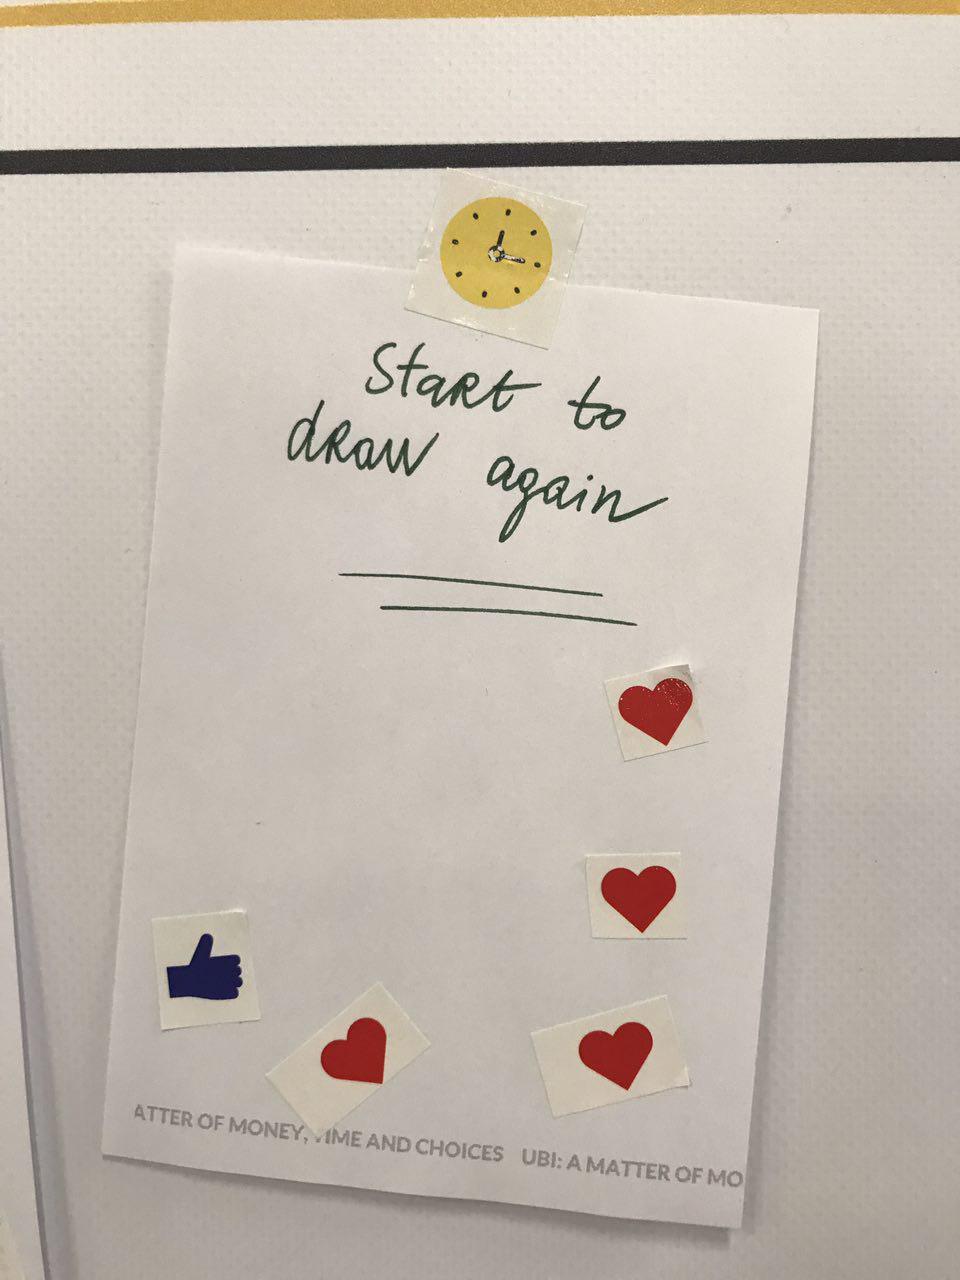 Start to
draw again
ATTER OF MONEY, TIME AND CHOICES UBI: A MATTER OF MO